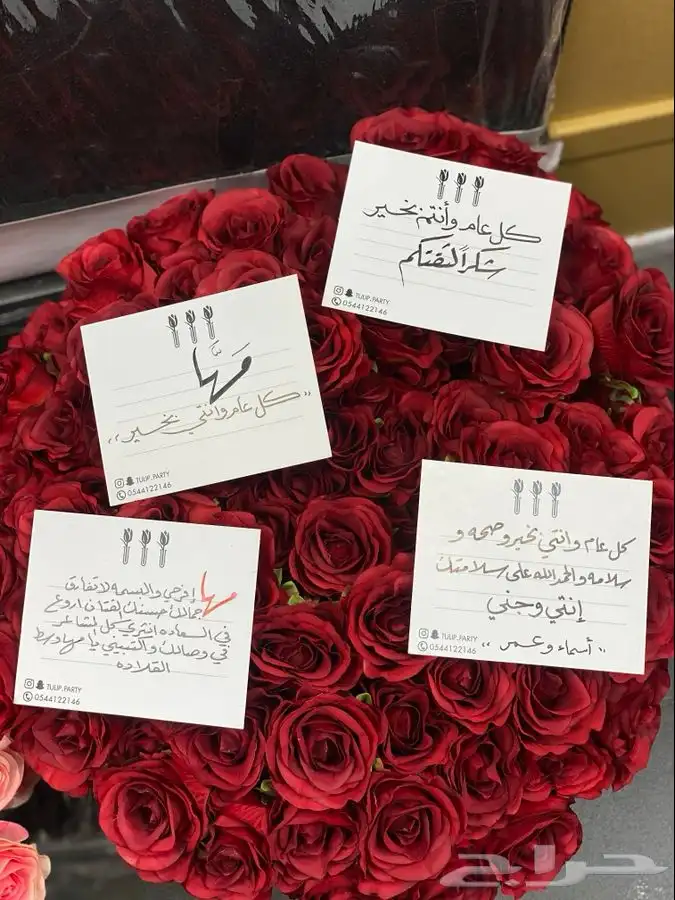 كل عام وأنتم بخير
شكراً لثقتكم
TULIP.PARTY
0544122146
مَهَّا
"كل عام وأنتي بخير"
TULIP.PARTY
0544122146
كل عام وانتي بخير وصحه و
سلامه والحمدالله على سلامتك
إنتي وجني
"أسماء وعمر"
TULIP.PARTY
0544122146
مها إفرحي والبسمه لاتفارق
جمالك حسنك لفتان اروع
في السعاده انثري كل لمشاعر
في وصالك والتسيبي يا مها وسط
القلاده
TULIP.PARTY
0544122146
حراج